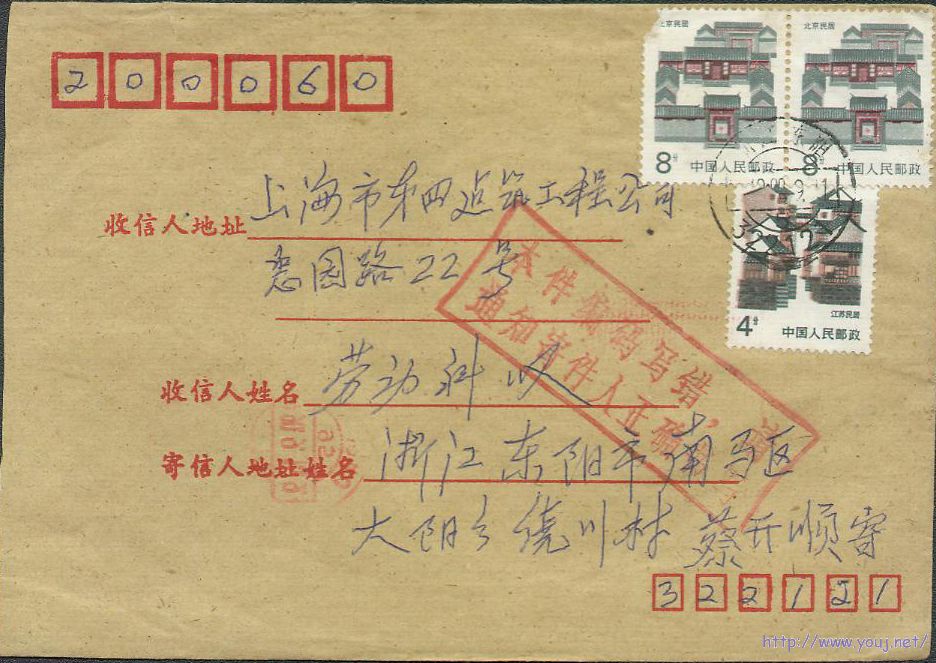 200060
北京民居
北京民居
8分
中国人民邮政
8分
中国人民邮政
收信人地址 上海市第四建筑工程公司
惠园路22号
江苏民居
4分
中国人民邮政
本件编码写错,请
通知寄件人正确
收信人姓名 劳动科 收
寄信人地址姓名 浙江东阳市南马区
大阳乡绕川村 蔡开顺寄
322121
http://www.youj.net/